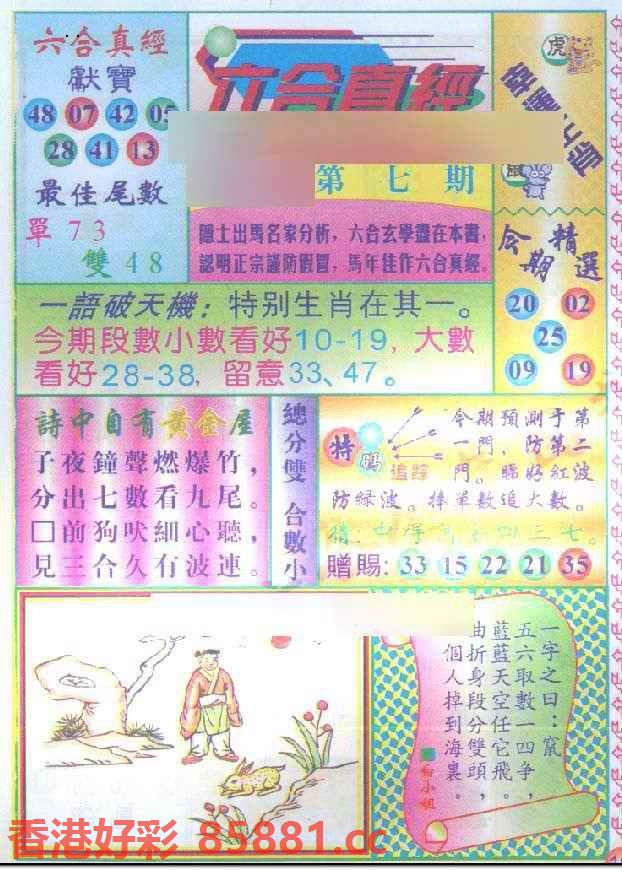 六合真經
獻寶
48 07 42 05
28 41 13
最佳尾數
單 7 3
雙 4 8
六合真經
第七期
隱士出馬名家分析，六合玄學盡在本書，
認明正宗謹防假冒，馬年佳作六合真經。
虎
鼠
今期精選
20 02
25
09 19
一語破天機：特别生肖在其一。
今期段數小數看好10-19，大數
看好28-38，留意33、47。
詩中自有黄金屋
子夜鐘聲燃爆竹，
分出七數看九尾。
□前狗吠細心聽，
見三合久有波連。
總分雙 合數小
特
碼
追踪
今期預測于第
一門，防第二
門。睇好紅波
防緑波。捧單數追大數。
四三七。
贈賜: 33 15 22 21 35
一字之曰：竄
五六取數一四爭，
藍藍天空任它飛。
曲折身段分雙頭，
個人掉到海裏。
白小姐
香港好彩 85881.cc